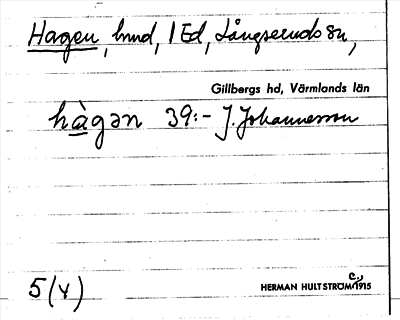 Hagen, hmd, 1 Ed, Långseruds sn,
Gillbergs hd, Värmlands län
hàgən 39:- J. Johannesson
5(v)
HERMAN HULTSTRÖM c., 1915